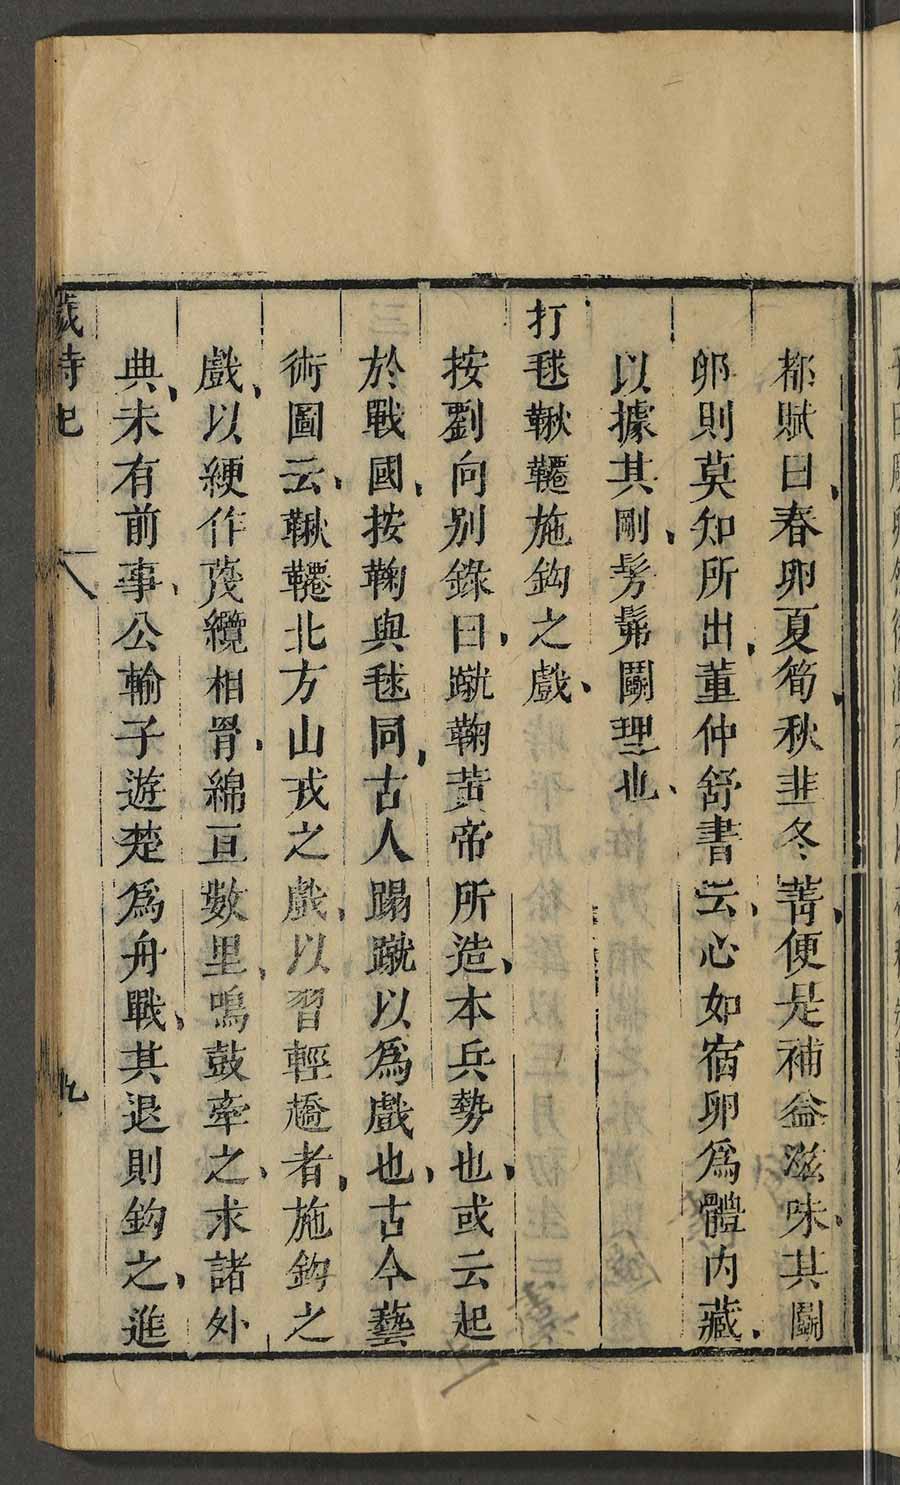 都賦曰春卵夏筍秋韭冬菁便是補益滋味其鬭
卵則莫知所出董仲舒書云心如宿卵爲體内藏
以據其剛髣髴鬭理也
打毬鞦韆施鉤之戲
按劉向别錄曰蹴鞠黃帝所造本兵勢也或云起
於戰國按鞠與毬同古人蹋蹴以爲戲也古今藝
術圖云鞦韆北方山戎之戲以習輕趫者施鉤之
戲以綆作篾纜相罥綿亘數里鳴鼓牽之求諸外
典未有前事公輸子遊楚爲舟戰其退則鉤之進
歲時記 八 九